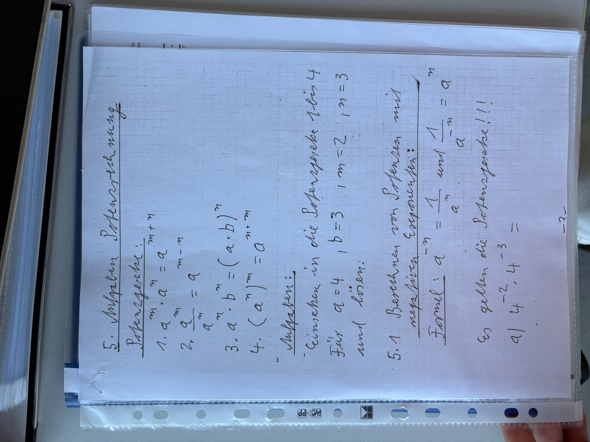 5. Aufgaben Potenzrechnung
Potenzgesetze:
1. a^m · a^n = a^(m+n)
2. a^m / a^n = a^(m-n)
3. a^n · b^n = (a·b)^n
4. (a^n)^m = a^(n+m)
Aufgaben:
Einsetzen in die Potenzgesetze 1 bis 4
Für a = 4 , b = 3 , m = 2 , n = 3
und lösen.
5.1 Berechnen von Potenzen mit
negativen Exponenten:
Formel: a^(-n) = 1 / a^n und 1 / a^(-n) = a^n
Es gelten die Potenzgesetze!!!
a) 4^(-2) · 4^(-3) =
-2-